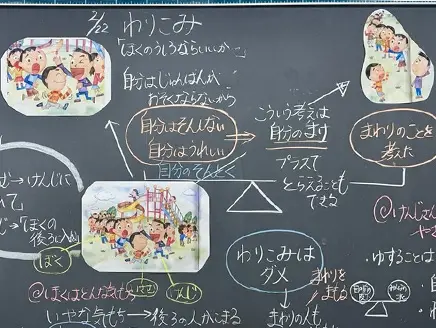 2/22 わりこみ
「ぼくのうしろならいいか」
自分はじゅんばんが
おそくならないから
自分はそんしない
自分はうれしい
自分のそんとく
こういう考えは
自分のまけ
プラスで
とらえることも
できる
まわりのことを
考えた
けんじに
「ぼくの
後ろに
ぼく
けんじ
わりこみは
ダメ
まわりを
まわりの人も
ゆることは
ぼくはどんな気もち
いやな気もち→後ろの人がこまる